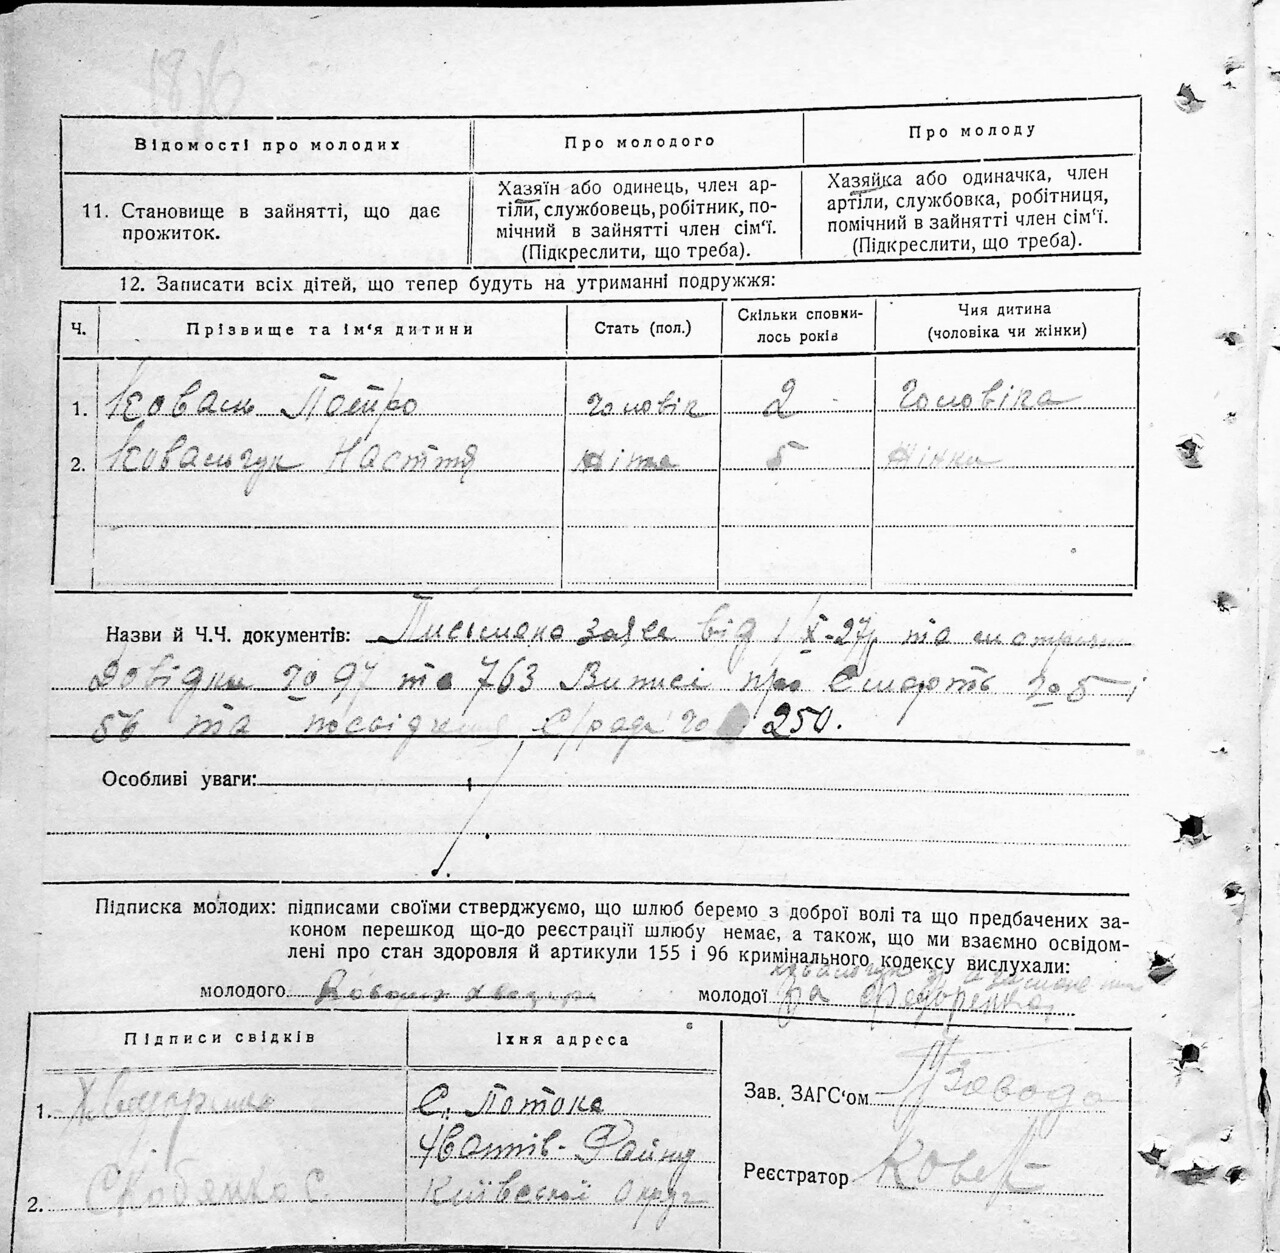 1876
Відомості про молодих
Про молодого
Про молоду
11. Становище в зайнятті, що дає
прожиток.
Хазяїн або одинець, член ар-
тіли, службовець, робітник, по-
мічний в зайнятті член сім'ї.
(Підкреслити, що треба).
Хазяйка або одиначка, член
артіли, службовка, робітниця,
помічний в зайнятті член сім'ї.
(Підкреслити, що треба).
12. Записати всіх дітей, що тепер будуть на утриманні подружжя:
Ч.
Прізвище та ім'я дитини
Стать (пол.)
Скільки сповни-
лось років
Чия дитина
(чоловіка чи жінки)
1. Коваль Петро чоловік 2 Чоловіка
2. Ковальчук Настття жіна 5 Жінки
Назви й Ч.Ч. документів: Письмена заява від 1/X-27р та
Довідки чо 97 та 763 Виписі про Смерть чо 5 і
56 та посвідчення С/ради чо 250.
Особливі уваги:
Підписка молодих: підписами своїми стверджуємо, що шлюб беремо з доброї волі та що предбачених за-
коном перешкод що-до реєстрації шлюбу немає, а також, що ми взаємно освідом-
лені про стан здоров'я й артикули 155 і 96 кримінального кодексу вислухали:
молодого
молодої Ковальчук
Підписи свідків
Їхня адреса
1.
С. Потоки
Київської Округ
2. Скобянко С.
Зав. ЗАГС'ом
Реєстратор